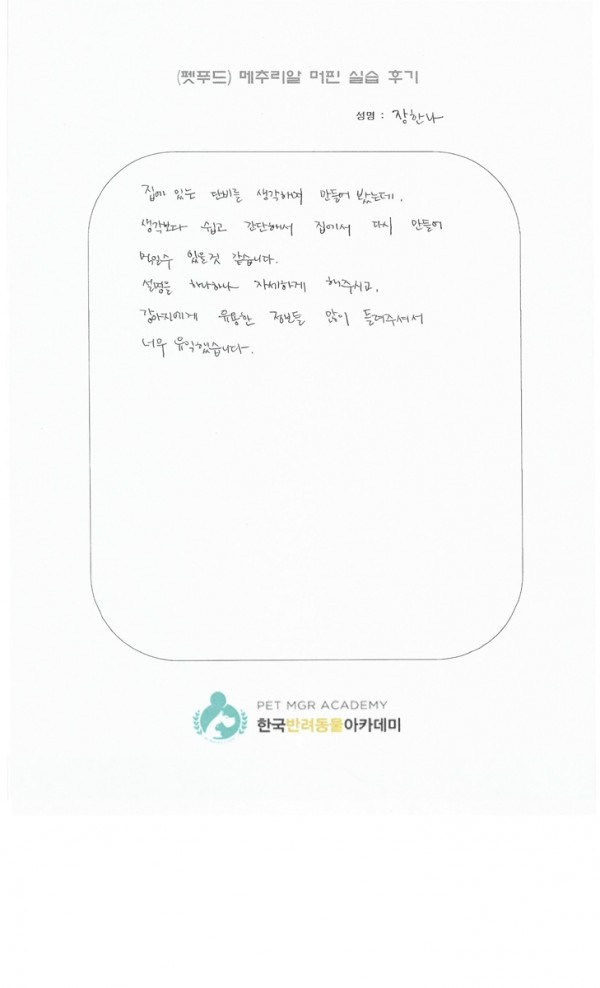 (펫푸드) 메추리알 머핀 실습 후기
성명 : 장한나
집에 있는 단비를 생각하며 만들어 봤는데,
생각보다 쉽고 간단해서 집에서 다시 만들어
먹일수 있을것 같습니다.
설명을 하나하나 자세하게 해주시고,
강아지에게 유용한 정보들 많이 들려주셔서
너무 유익했습니다.
PET MGR ACADEMY
한국반려동물아카데미